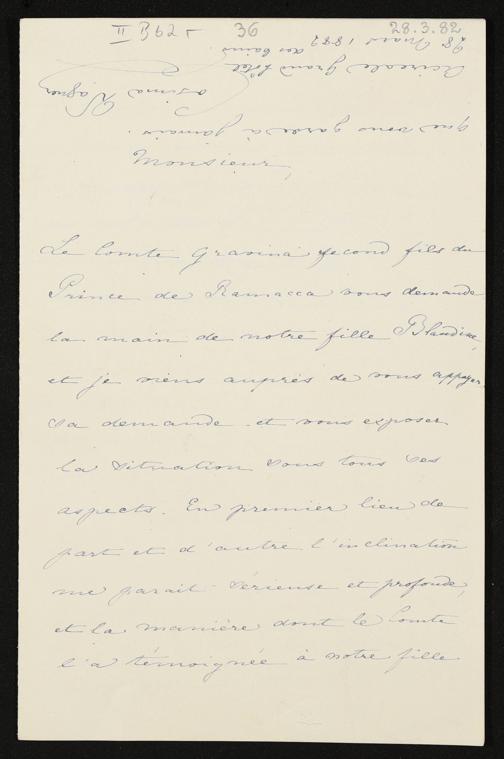 II B 62 - 36
28.3.82
Monsieur,
Le Comte Gravina second fils du
Prince de Ramacca vous demande
la main de notre fille Blandine,
et je viens auprès de vous appuyer
sa demande et vous exposer
la situation sous tous ses
aspects. En premier lieu de
part et d'autre l'inclination
me parait sérieuse et profonde,
et la manière dont le Comte
l'a témoignée à notre fille
que vous garde à jamais.
Cosima Wagner
Acireale Grand Hôtel
des bains.
28 Mars 1882